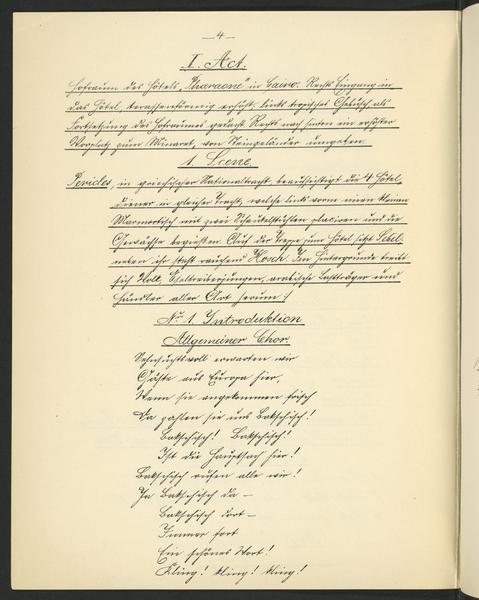 — 4 —
I. Act.
Hofraum des Hôtels „Pharaone" in Cairo. Rechts Eingang in
das Hôtel, terassenförmig erhöht, links tropisches Gebüsch als
Fortsetzung des Hofraumes gedacht. Rechts nach hinten ein erhöhter
Vorplatz zum Minaret, von Steingeländer umgeben.
1. Scene.
Pericles, in griechischer Nationaltracht, beaufsichtigt die 4 Hôtel-
diener in gleicher Tracht, welche links vorn einen kleinen
Marmortisch mit zwei Schaukelstühlen placiren und die
Gewächse begießen. Auf der Treppe zum Hôtel sitzt
neben ihr steht rauchend Hosch. Im Hintergrunde treibt
sich Volk, Eseltreiberjungen, arabische Lastträger und
Händler aller Art herum.)
No. 1. Introduktion
Allgemeiner Chor.
Sehnsuchtsvoll erwarten wir
Gäste aus Europa hier,
Wenn sie angekommen frisch
Da zahlen sie uns Bakschisch!
Bakschisch! Bakschisch!
Ist die Hauptsach hier!
Bakschisch rufen alle wir!
Ja Bakschisch da —
Bakschisch dort —
Immer fort
Ein schönes Wort!
Kling! kling! kling!